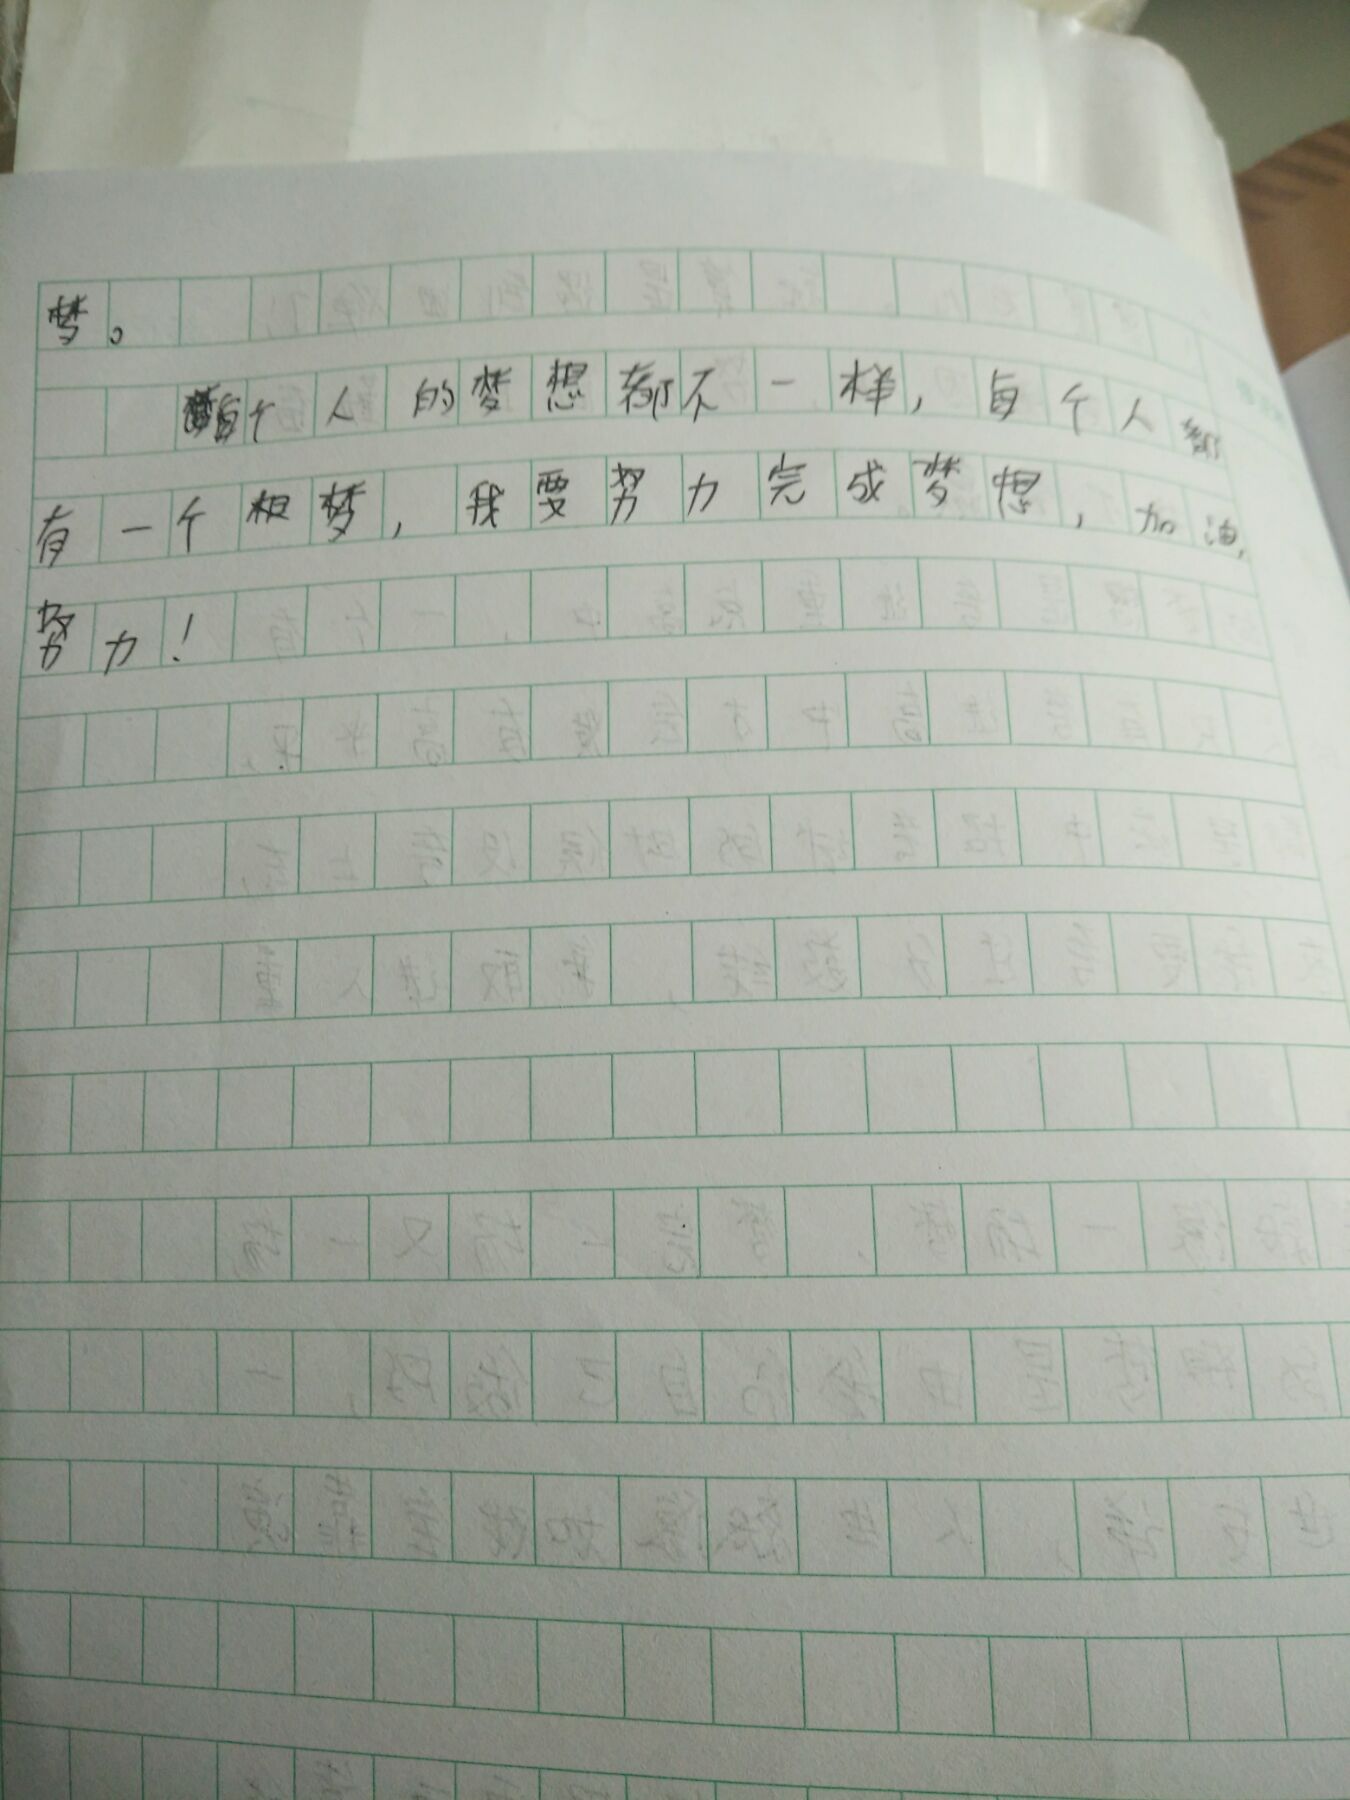 梦。
每个人的梦想都不一样，每个人都
有一个相梦，我要努力完成梦想，加油，
努力！